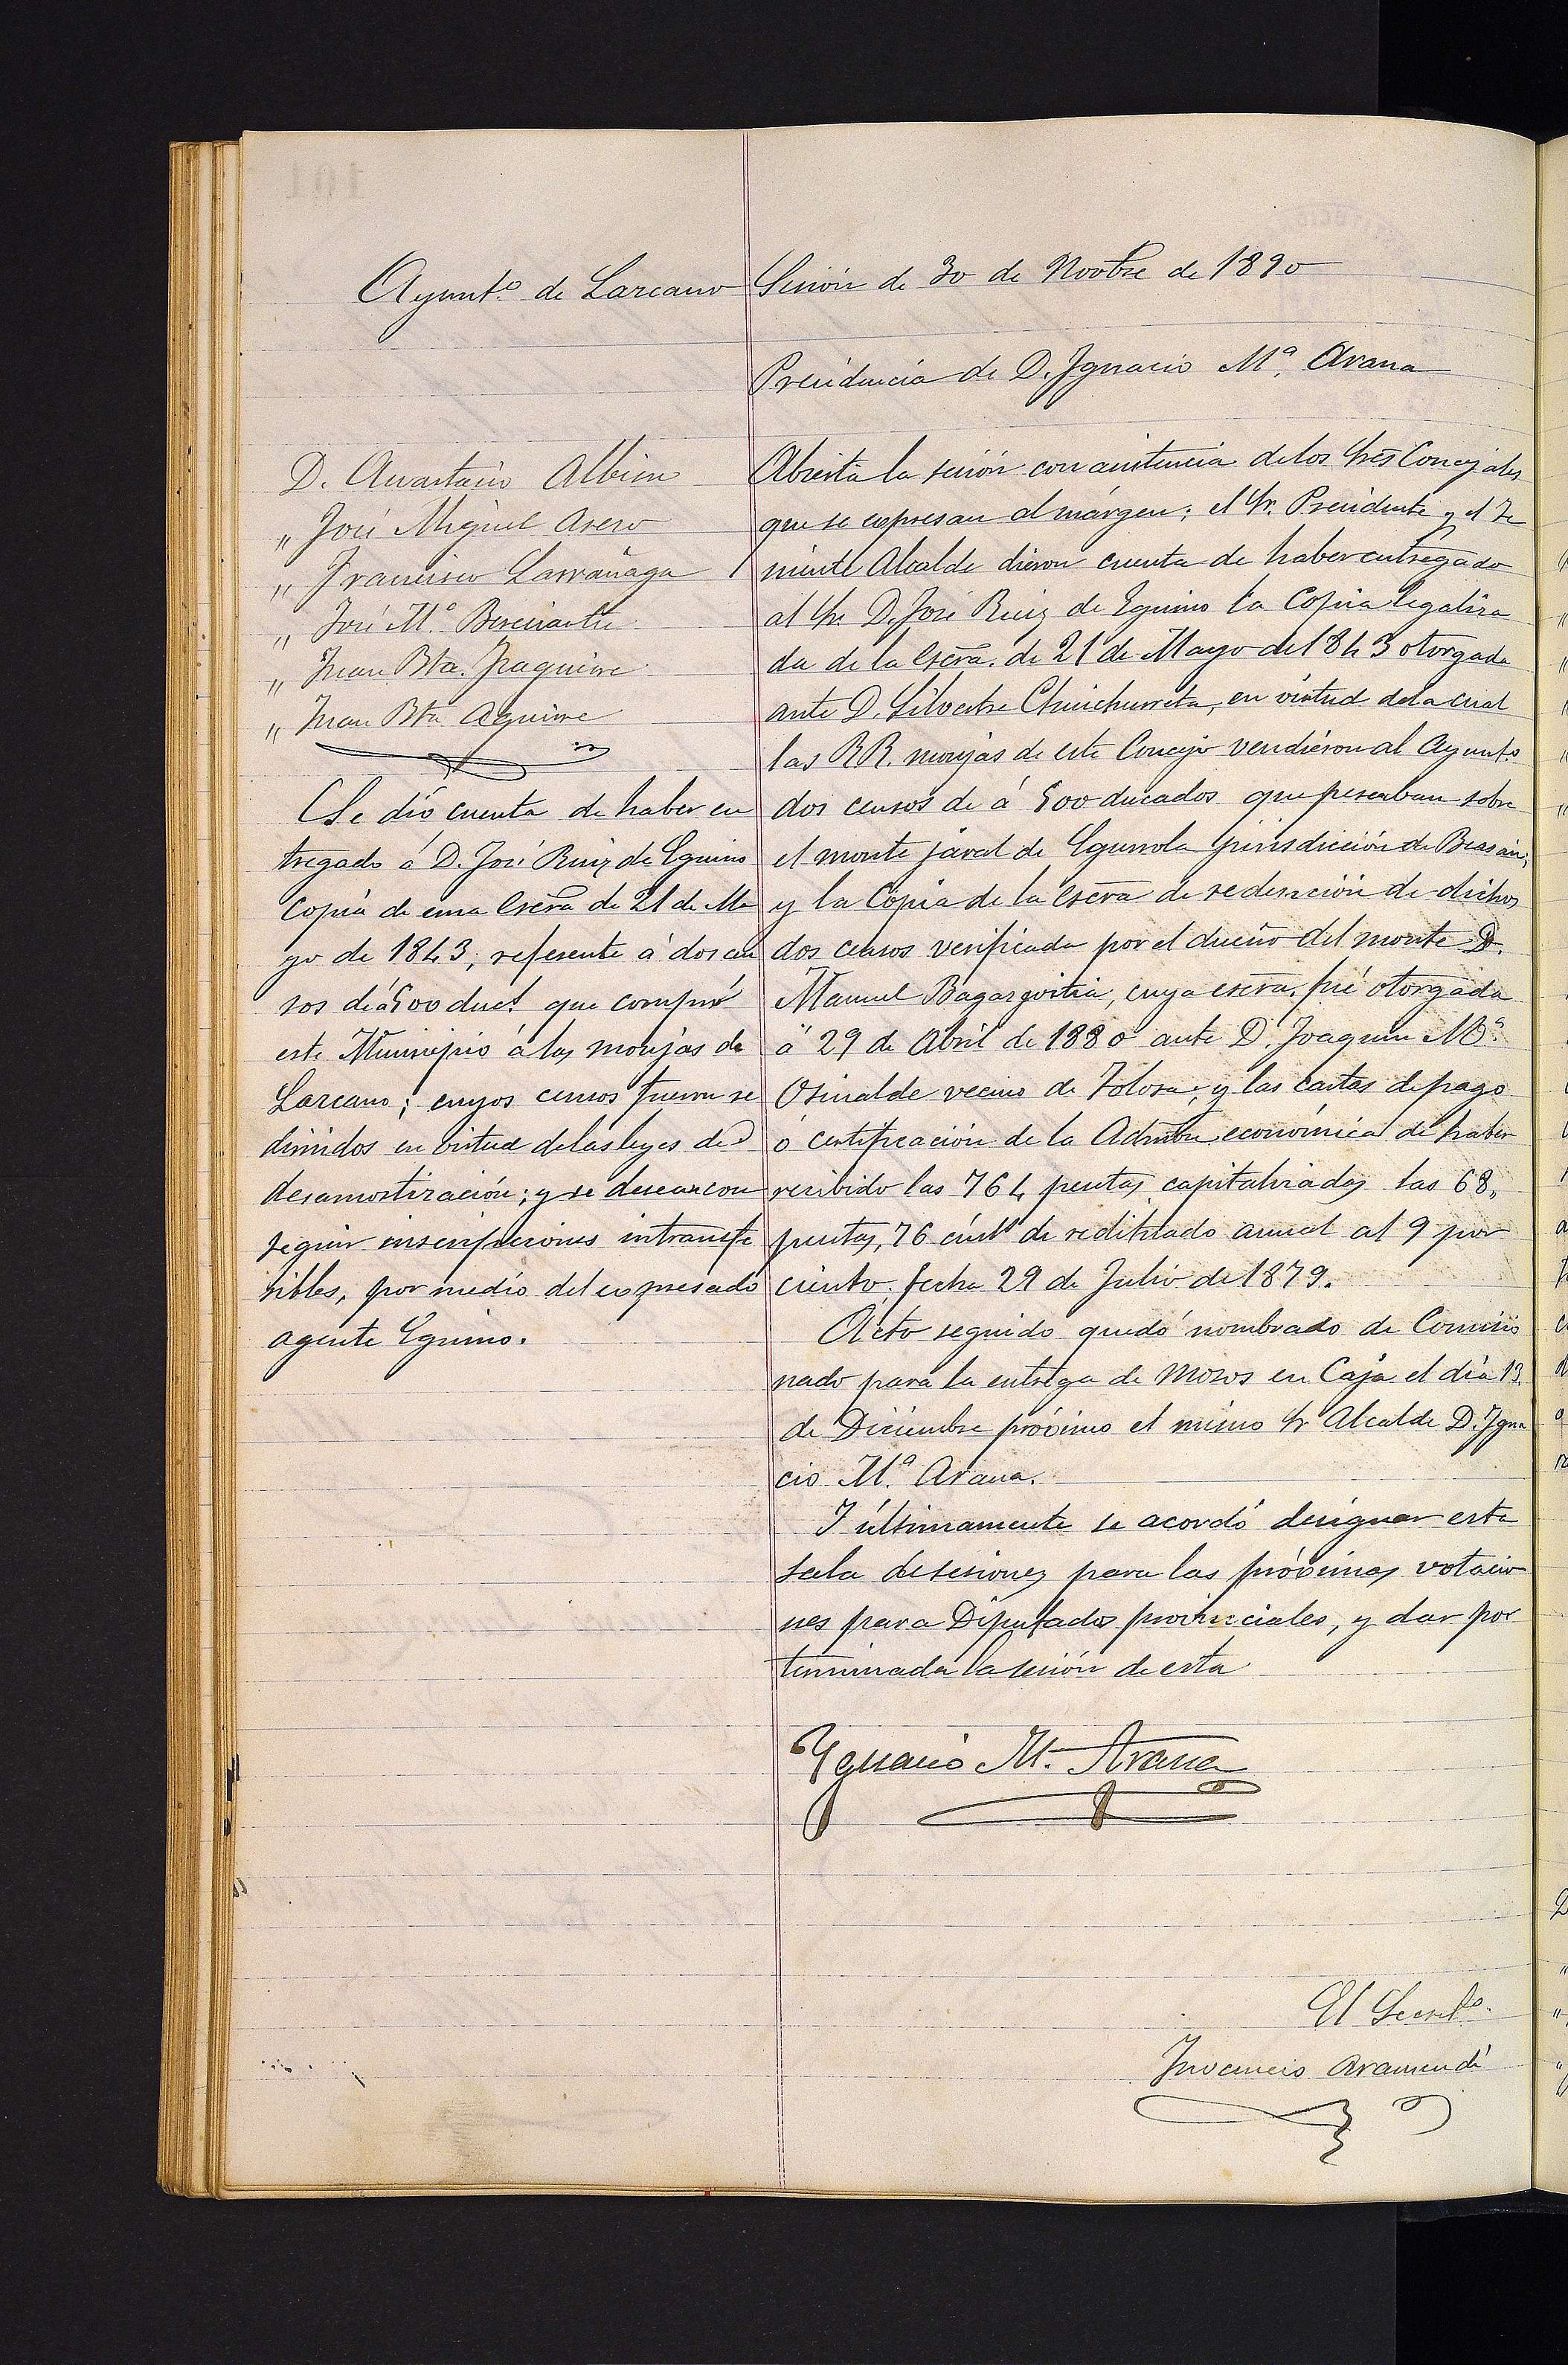 Ayunt.º de Lazcano
Sesión de 30 de Novbre de 1890
Presidencia de D. Ygnacio Mª. Arana
D. Anastasio Albisu
„ José Miguel Asero
„ Francisco Larrañaga
„ José Mª
„ Juan Bta.
„ Juan Bta Aguirre
Se dió cuenta de haber en
tregado á D. José Ruiz de Eguino
copia de una Escra de 21 de Ma
yo de 1843, referente á dos cen
sos de á 500 duc.s que compró
este Municipio á las monjas de
Lazcano; cuyos censos fueron re
dimidos en virtud de las leyes de
desamortización; y se desean con
seguir inscripciones intransfe
ribles, por medio del expresado
agente Eguino.
Abierta la sesión con asistencia de los Sres Concejales
que se expresan al márgen; el Sr. Presidente y el Te
niente Alcalde dieron cuenta de haber entregado
al Sr. D. José Ruiz de Eguino la Copia legaliza
da de la Escra. de 21 de Mayo de 1843 otorgada
ante D. Silvestre Chinchurreta, en virtud de la cual
las RR. monjas de este Concejo vendieron al Ayunt.º
dos censos de á 500 ducados que pesaban sobre
el monte jaral de jurisdicción de Beasain;
y la Copia de la escra de redención de dichos
dos censos verificada por el dueño del monte D.
Manuel Bagazgoitia, cuya escra. fué otorgada
á 29 de Abril de 1880 ante D. Joaquin Mª.
Osinalde vecino de Tolosa; y las cartas de pago
ó certificación de la Admón económica de haber
recibido las 764 pesetas capitalizadas las 68,
pesetas, 76 cénts de redituado anual al 9 por
ciento. fecha 29 de Julio de 1879.
Acto seguido quedó nombrado de Comisio
nado para la entrega de mozos en Caja el dia 13
de Diciembre próximo el mismo Sr Alcalde D. Ygna
cio Mª. Arana.
Y últimamente se acordó designar esta
sala de sesiones para las próximas votacio
nes para Diputados provinciales, y dar por
terminada la sesión de esta
Ygnacio M. Arana
El Secret.º
Inocencio Aramendi